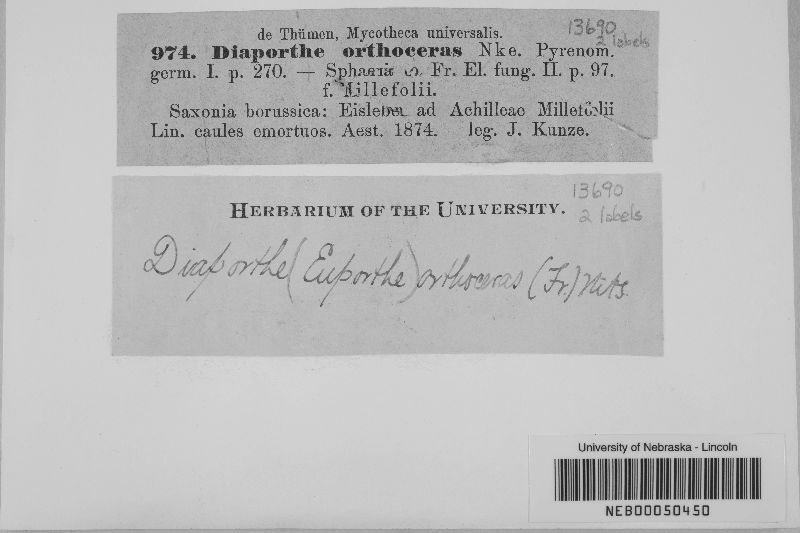 de Thümen, Mycotheca universalis.
13690
2 labels
974. Diaporthe orthoceras Nke. Pyrenom.
germ. I. p. 270. — Sphaeria o. Fr. El. fung. II. p. 97.
f. Millefolii.
Saxonia borussica: Eisleben ad Achilleae Millefolii
Lin. caules emortuos. Aest. 1874. leg. J. Kunze.
13690
2 labels
HERBARIUM OF THE UNIVERSITY.
Diaporthe (Euporthe) orthoceras (Fr.) Nits.
University of Nebraska - Lincoln
NEB00050450